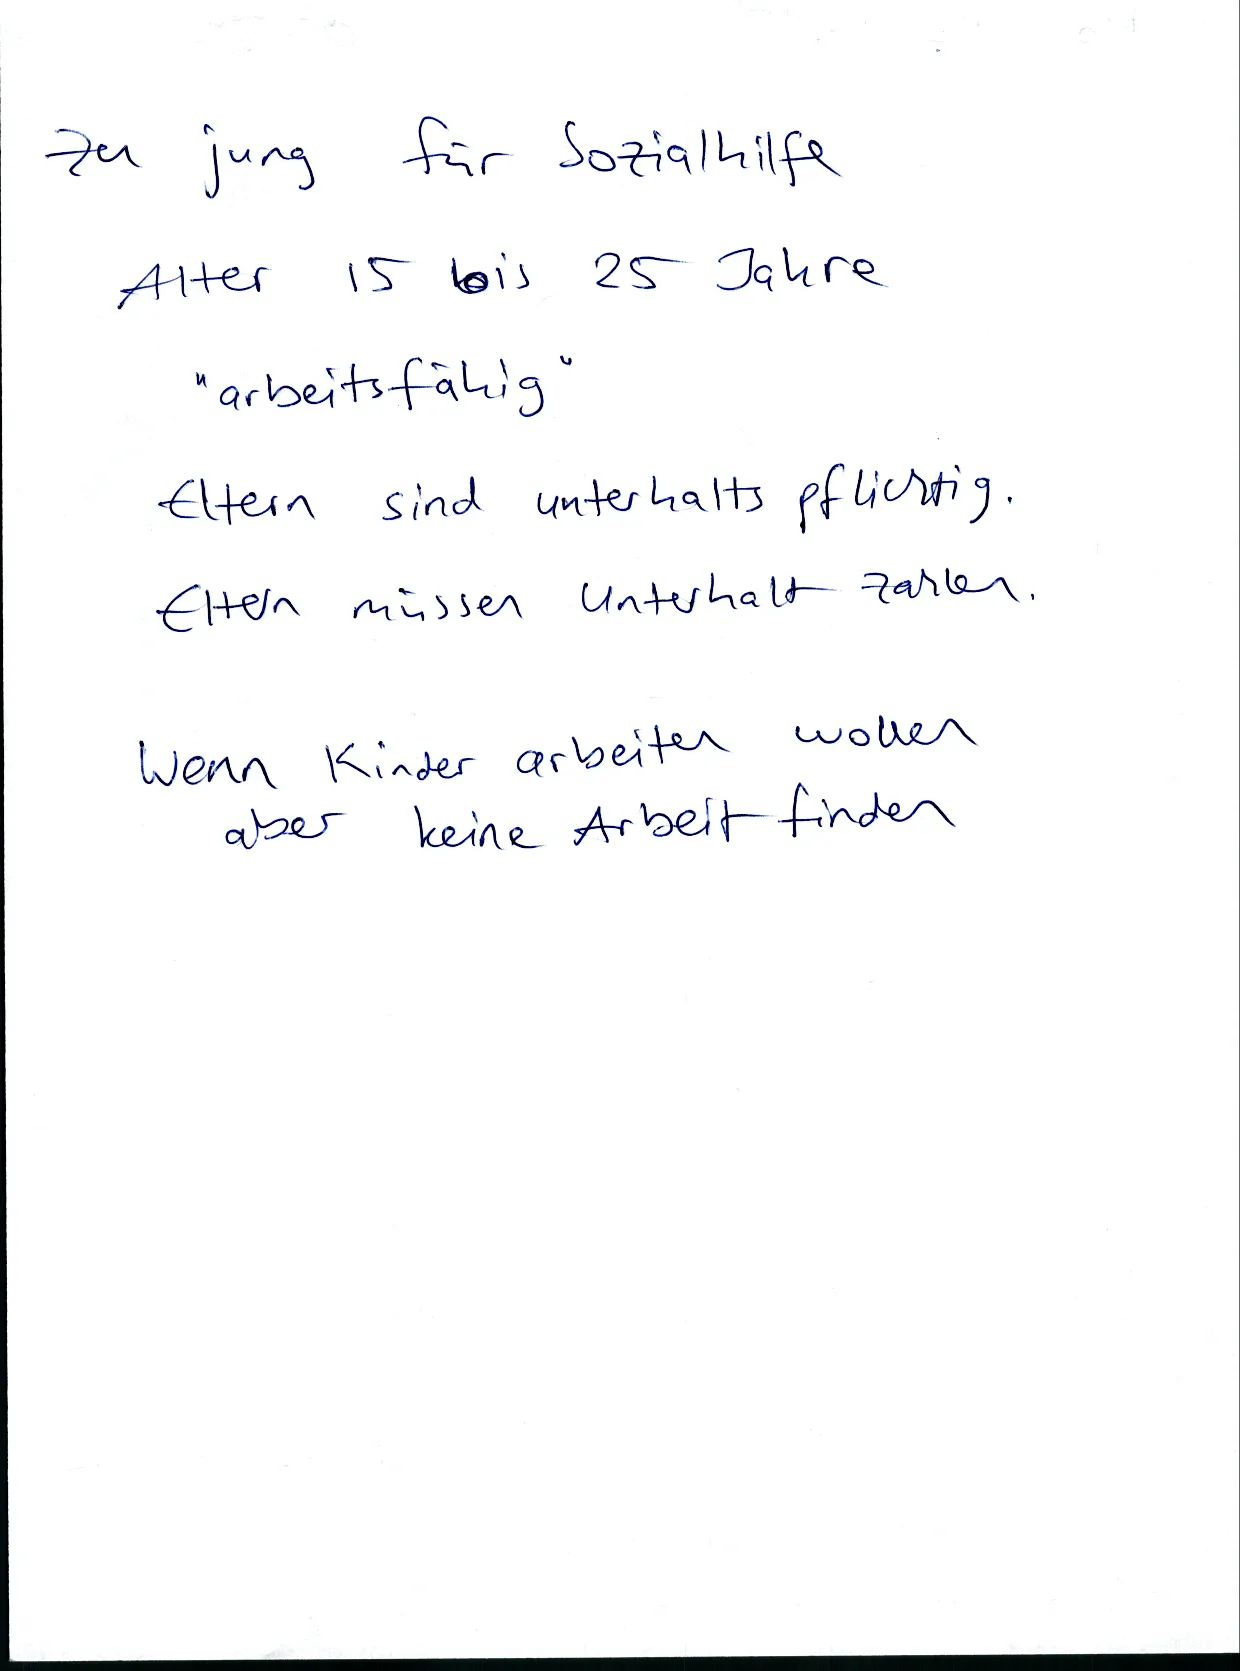 Zu jung für Sozialhilfe
Alter 15 bis 25 Jahre
"arbeitsfähig"
Eltern sind unterhalts pflichtig.
Eltern müssen Unterhalt zahlen.
Wenn Kinder arbeiten wollen
aber keine Arbeit finden